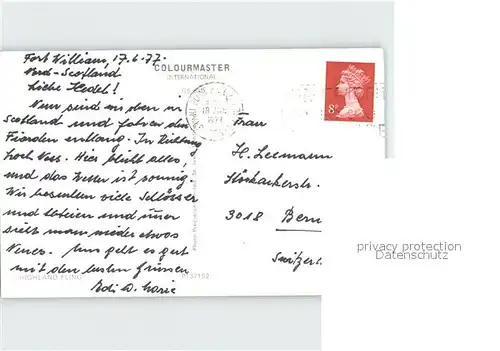 Fort William, 17.6.77.
Nord-Scotland
Liebe Hedel!
Nun sind wir oben in
Scotland und fahren den
Fiorden entlang. In Richtung
Loch Ness. Hier blüht alles,
und das Wetter ist sonnig.
Wir besuchen viele Schlösser
und Abteien und immer
sieht man wieder etwas
Neues. Uns geht es gut
mit den besten Grüssen
Edi u. Marie
HIGHLAND FLING
COLOURMASTER
INTERNATIONAL
PT37152
18 JUN
1977
8P
Frau
H. Leemann
3018 Bern
privacy protection
Datenschutz